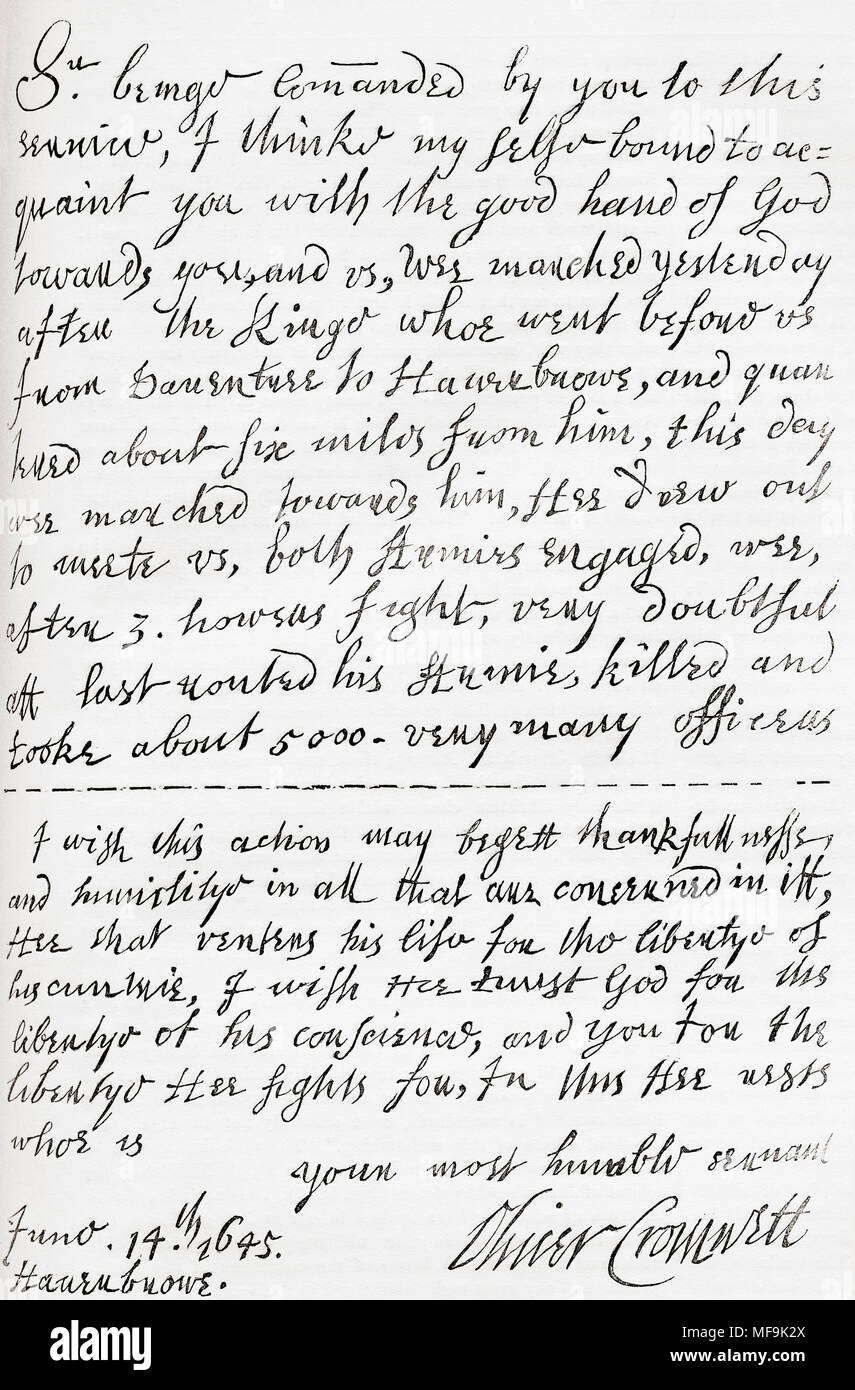 Sr. beinge Com̄anded by you to this
seruice, I thinke my selfe bound to ac=
quaint you with the good hand of God
towards you, and vs, Wee marched yesterday
after the Kinge whoe went before vs
from Dauentree to Hauerbrowe, and quar
tered about six miles from him, this day
wee marched towards him, Hee drew out
to meete vs, both Armies engaged, wee,
after 3. howers fight, very doubtful
att last routed his Armie, killed and
tooke about 5000 - very many officers
I wish this action may begett thankfullnesse,
and humilitye in all that are concerned in itt,
Hee that venters his life for the libertye of
his cuntrie, I wish Hee trust God for the
libertye of his conscience, and you for the
libertye Hee fights for, In this Hee rests
whoe is
your most humble seruant
Oliver Cromwell
June. 14.th 1645.
Hauerbrowe.
alamy
Image ID: MF9K2X
www.alamy.com